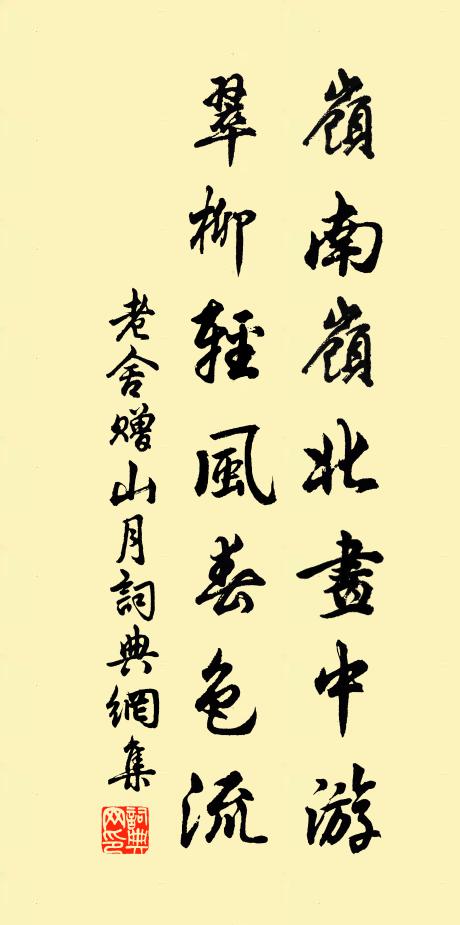 嶺南嶺北畫中游
翠柳輕風春色流
老舍赠山月詞典網集
詞典
网印